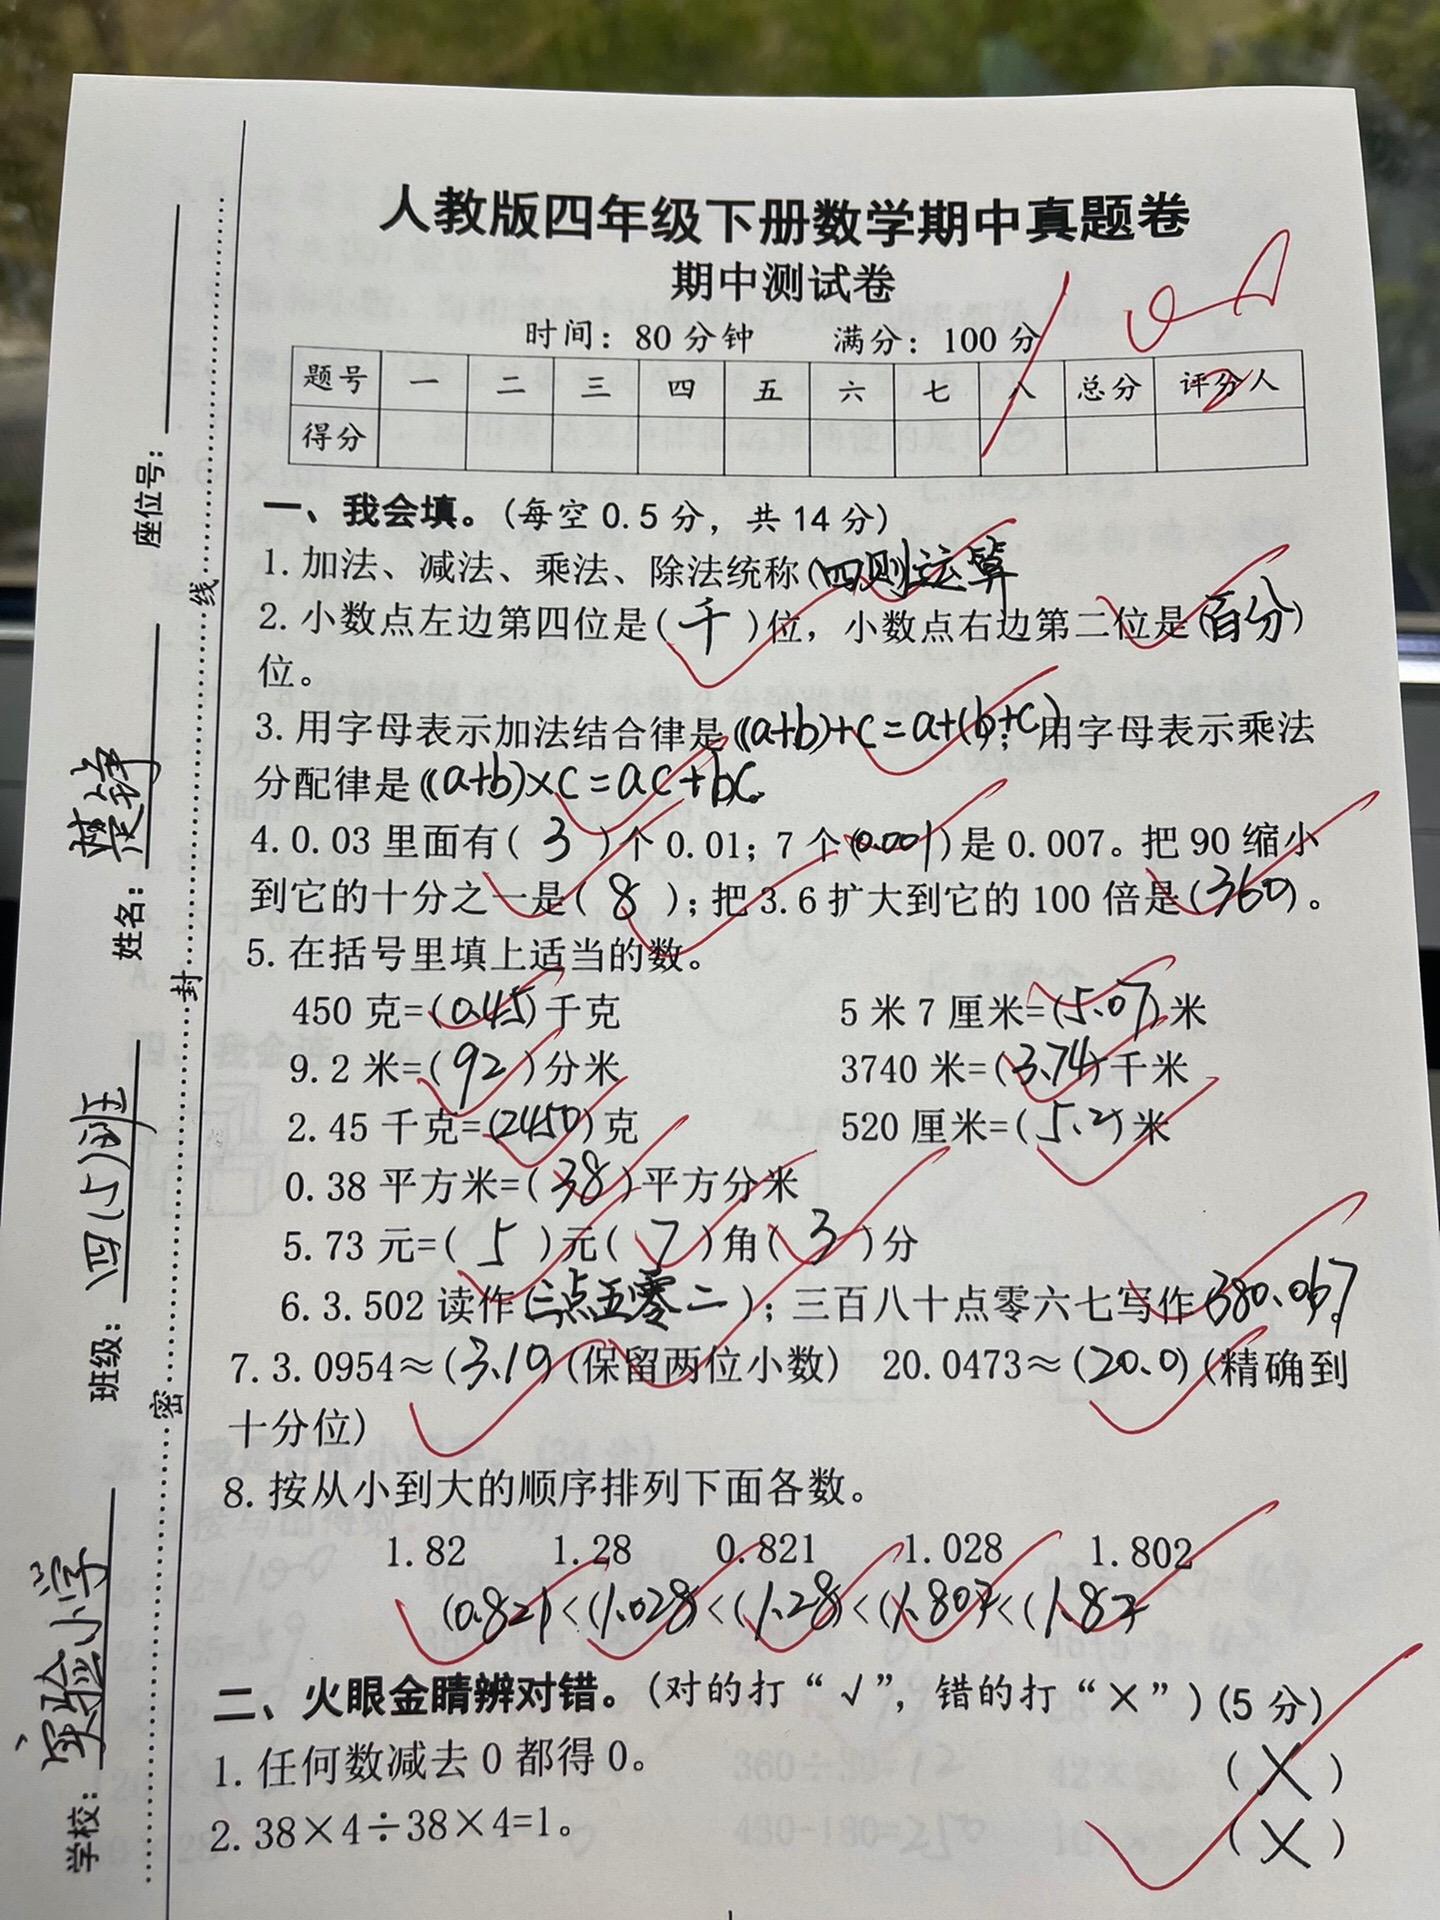 人教版四年级下册数学期中真题卷
期中测试卷
时间：80分钟 满分：100分
题号 一 二 三 四 五 六 七 八 总分 评分人
得分
一、我会填。（每空0.5分，共14分）
1.加法、减法、乘法、除法统称(四则运算
2.小数点左边第四位是(千)位，小数点右边第二位是(百分)
位。
3.用字母表示加法结合律是((a+b)+c=a+(b+c)；用字母表示乘法
分配律是((a+b)×c=ac+bc。
4.0.03里面有(3)个0.01；7个(0.001)是0.007。把90缩小
到它的十分之一是(8)；把3.6扩大到它的100倍是(360)。
5.在括号里填上适当的数。
450克=(0.45)千克 5米7厘米=(5.07)米
9.2米=(92)分米 3740米=(3.74)千米
2.45千克=(2450)克 520厘米=(5.2)米
0.38平方米=(38)平方分米
5.73元=(5)元(7)角(3)分
6.3.502读作(三点五零二)；三百八十点零六七写作(380.067。
7.3.0954≈(3.10(保留两位小数) 20.0473≈(20.0)(精确到
十分位)
8.按从小到大的顺序排列下面各数。
1.82 1.28 0.821 1.028 1.802
(0.821)<(1.028)<(1.28)<(1.802)<(1.82)
二、火眼金睛辨对错。(对的打“√”，错的打“×”)(5分)
1.任何数减去0都得0。 (×)
2.38×4÷38×4=1。 (×)
座位号：
姓名：楚铮
班级：四(5)班
学校：实验小学
密 封 线